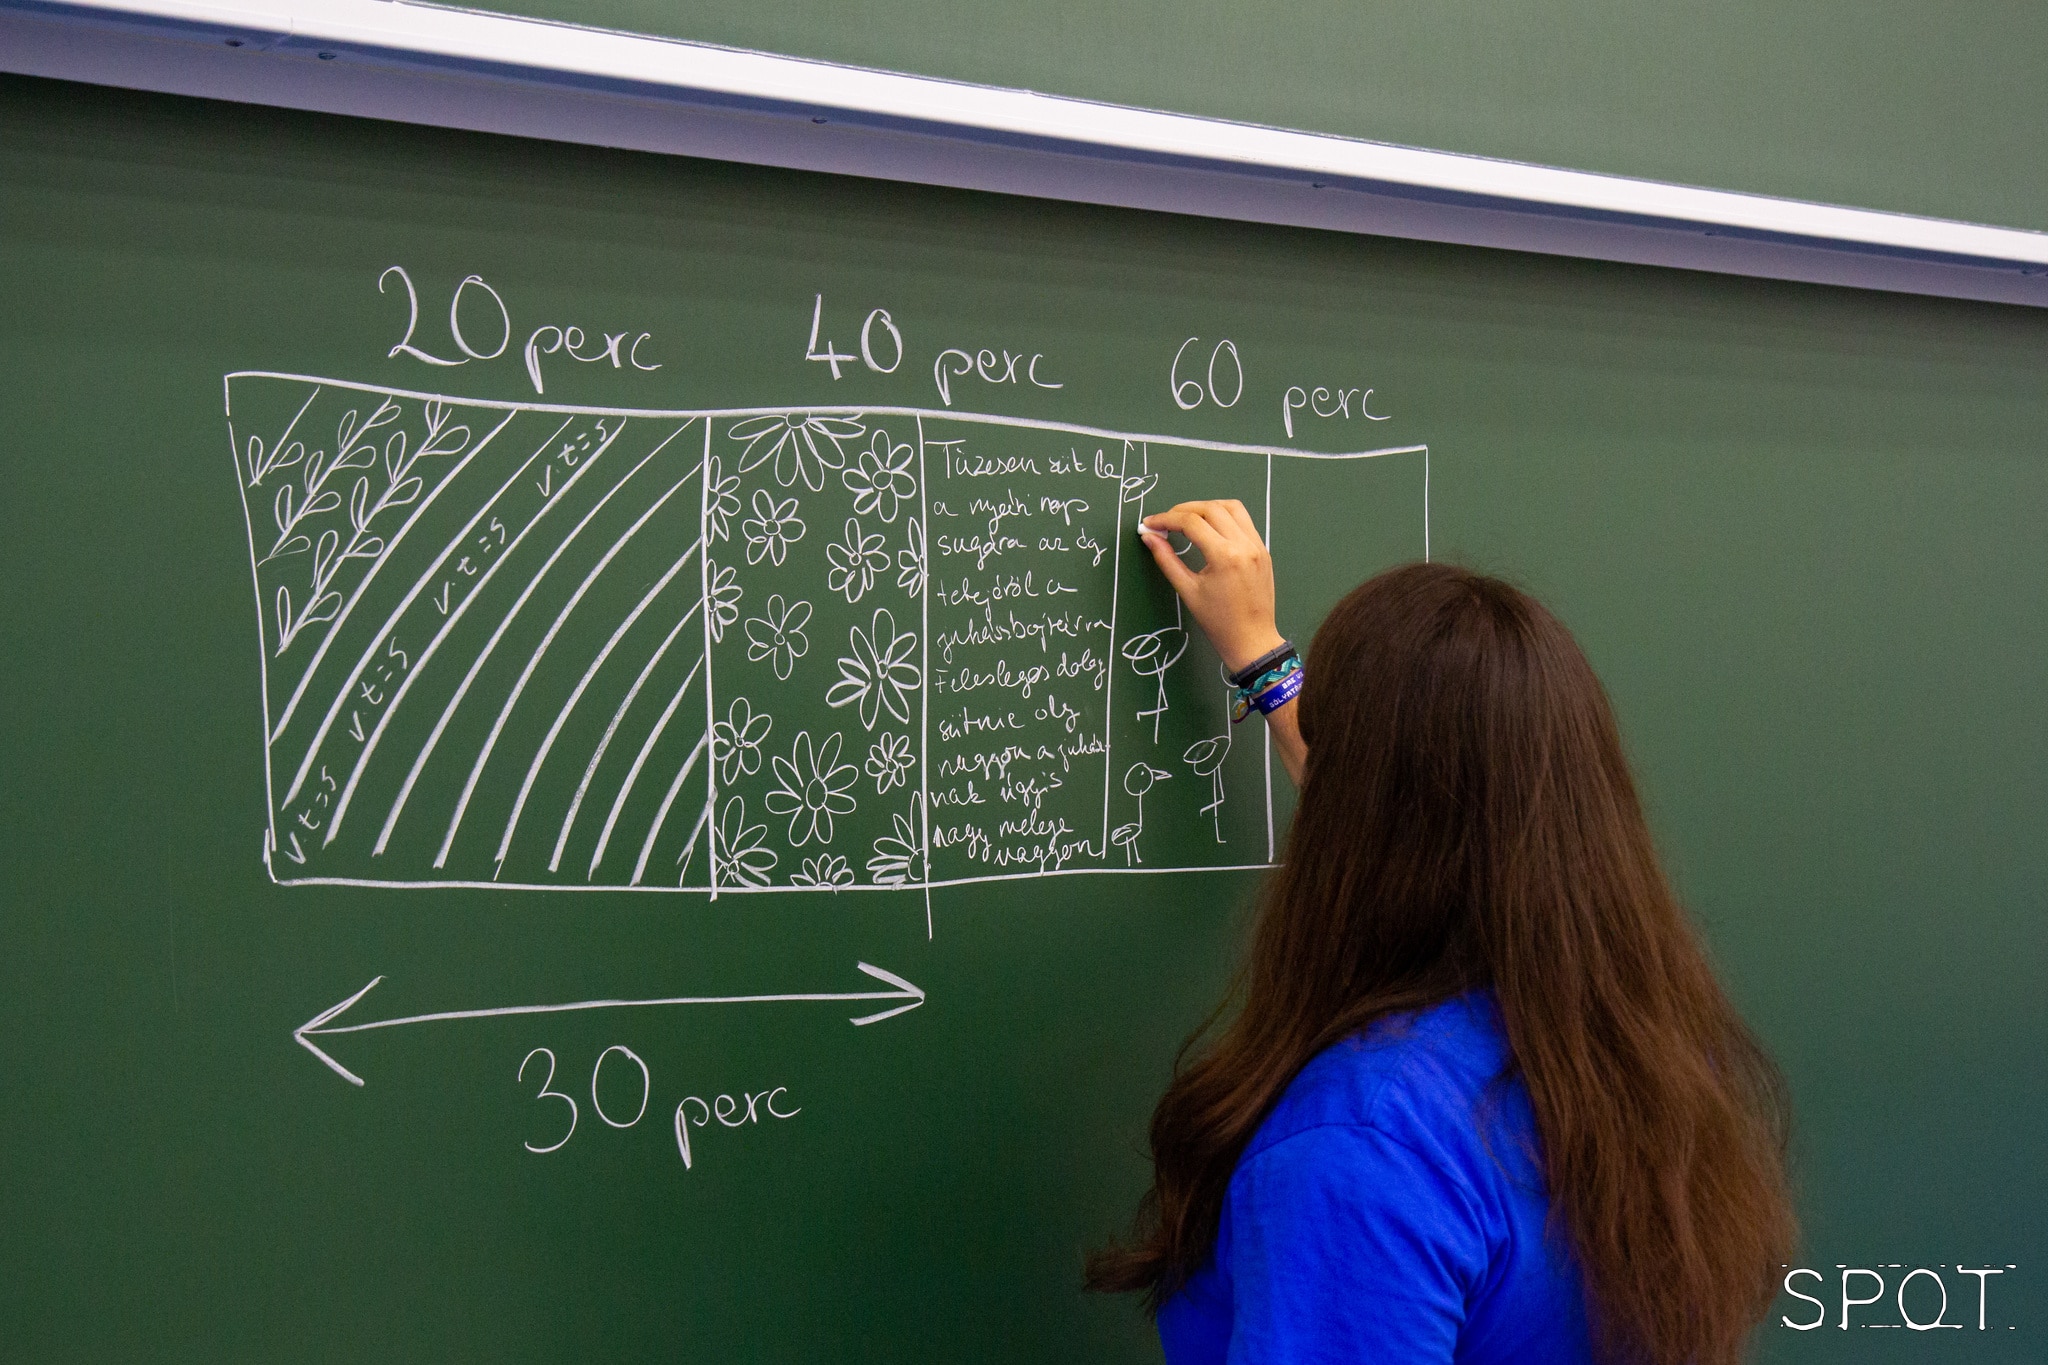 20 perc
40 perc
60 perc
v·t=s
v·t=s
v·t=s
v·t=s
v·t=s
Tüzesen süt le
a nyári nap
sugára az ég
tetejéről a
juhászbojtárra
Felesleges dolog
sütnie oly
nagyon a juhász-
nak úgyis
nagy melege
vagyon
30 perc
SPOT